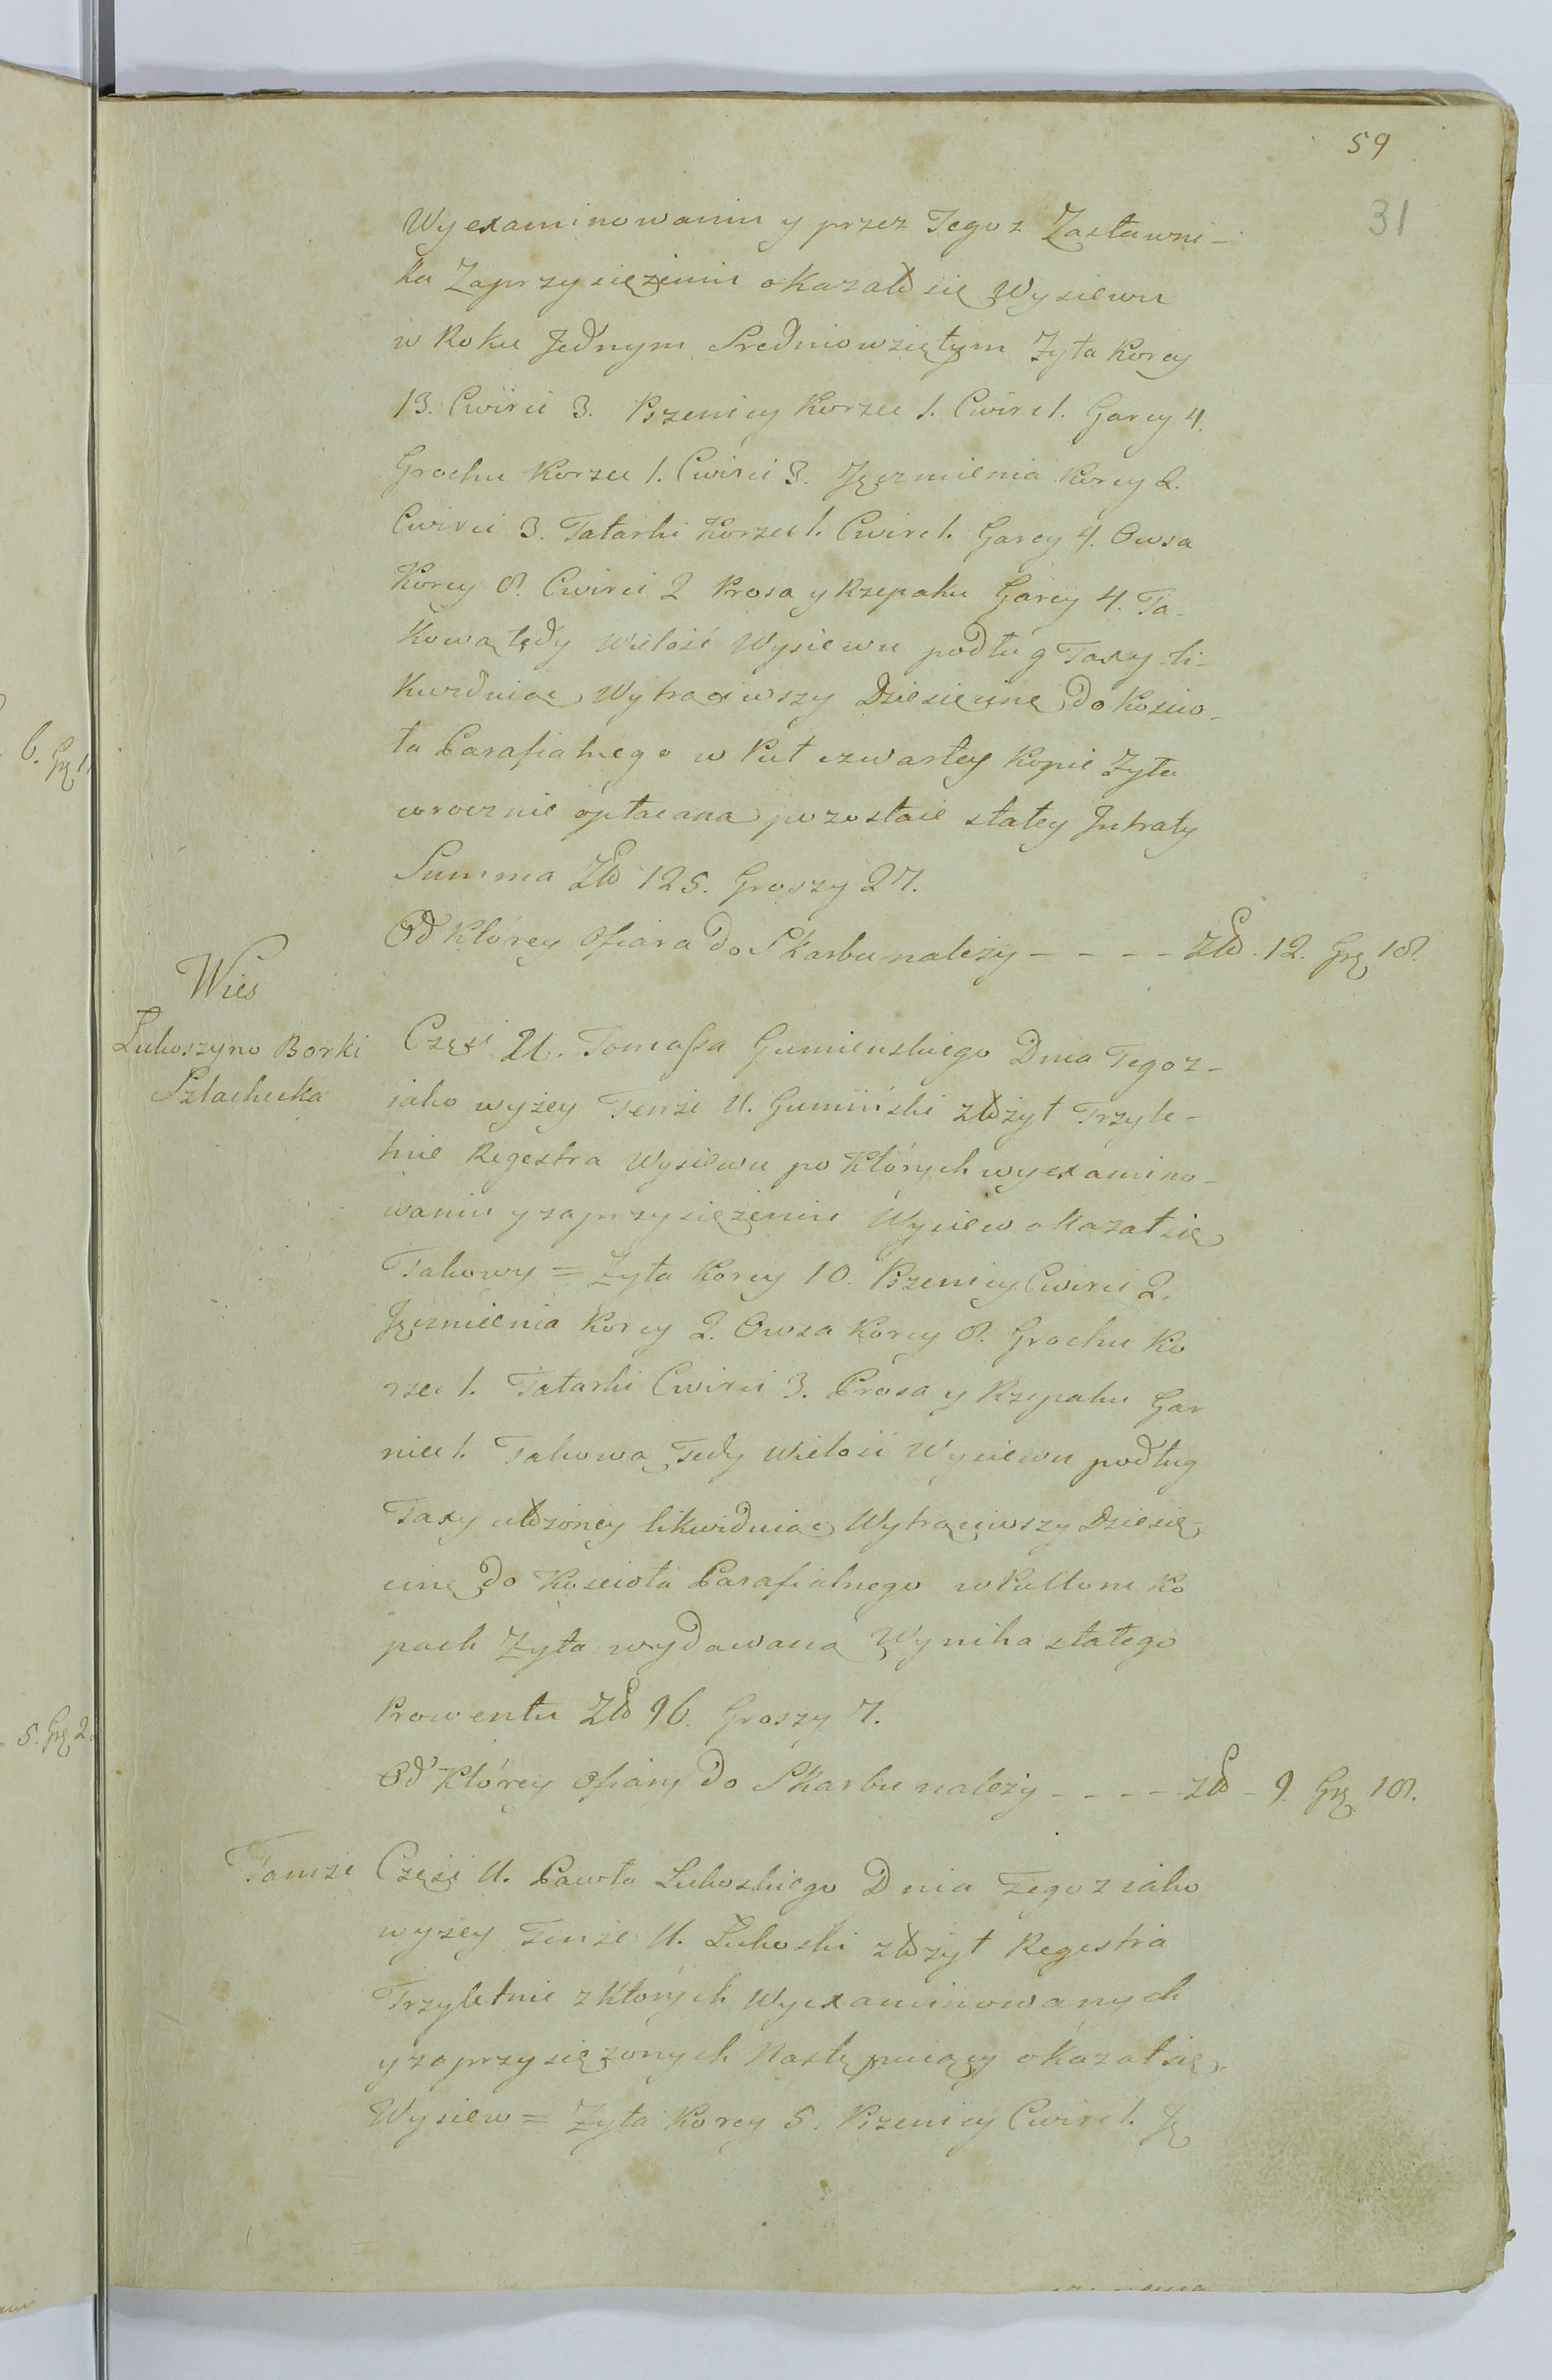 59
31
Wyexaminowaniu y przez Tegoz Zastawni-
ka Zaprzysięzeniu okazało się Wysiewu
w Roku Jednym Sredniowziętym Zyta Korcy
13. Cwirci 3. Pszenicy Korzec 1. Cwirc 1. Garcy 4.
Grochu Korzec 1. Cwirci 3. Jęczmienia Korcy 2.
Cwirci 3. Tatarki Korzec 1. Cwirc 1. Garcy 4. Owsa
Korcy 8. Cwirci 2 Prosa y Rzepaku Garcy 4. Ta-
kową tędy wielość Wysiewu podług Taxy li-
kwiduiąc Wytrąciwszy Dziesięcinę do Koscio-
ła Parafialnego w Puł czwartey Kopie Zyta
corocznie opłacaną pozostaie stałey Intraty
Summa Zło 125. Groszy 27.
Od Którey Ofiara do Skarbu należy - - - - Zło. 12. Grę 18.
Wies
Lukoszyno Borki
Szlachecka
Część U. Tomassa Gumienskiego Dnia Tegoz-
iako wyżey Tenże U. Gumiński złożył Trzyle-
tnie Regestra Wysiewu po Których wyexamino-
waniu y zaprzysiężeniu Wysiew okazał się
Takowy = Zyta Korcy 10. Pszenicy Cwirci 2.
Jęczmienia Korcy 2. Owsa Korcy 8. Grochu Ko
rzec 1. Tatarki Cwirci 3. Prosa y Rzepaku Gar
niec 1. Takową Tedy Wielość Wysiewu podług
Taxy ułożoney likwiduiąc Wytrąciwszy Dziesię
cinę do Kościoła Parafialnego w Półtore Ko
pach Zyta wydawaną Wynika stałego
Prowentu Zło 96. Groszy 7.
Od Którey Ofiary do Skarbu należy - - - - Zło - 9. Grę 18.
Tamże
Część U. Pawła Lukoskiego Dnia Tegoz iako
wyżey Tenże U. Lukoski złożył Regestra
Trzyletnie z Których Wyexaminowanych
y zaprzysiężonych Następuiący okazał się
Wysiew = Zyta Korcy 5. Pszenicy Cwirc 1. Ję
6. Grę 1
5. Grę 2